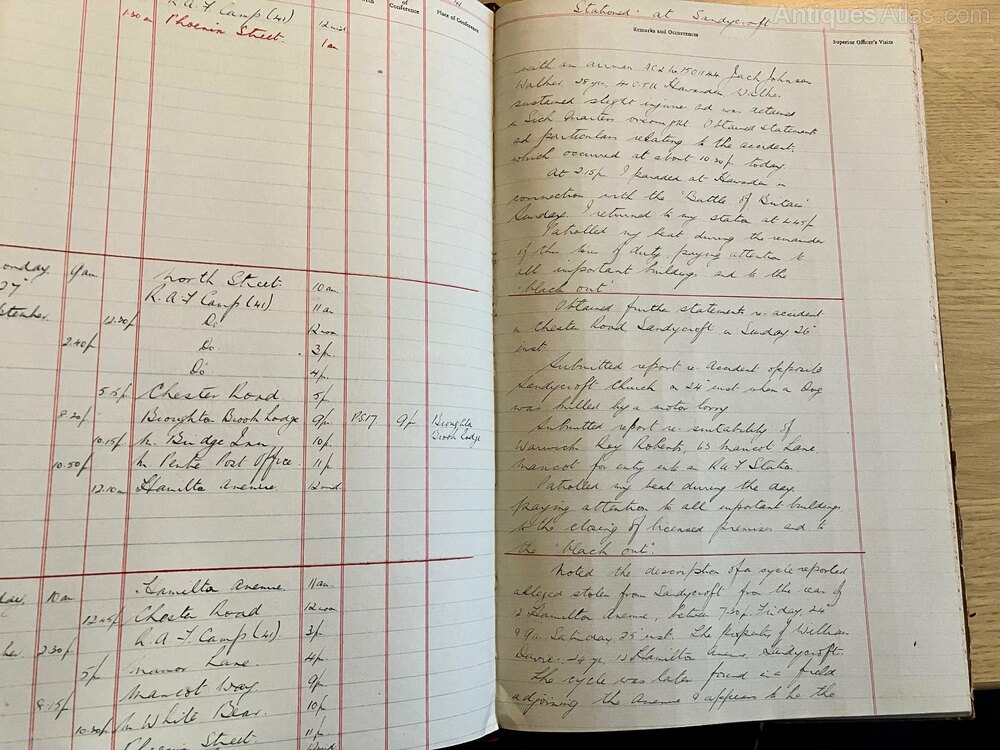 AntiquesAtlas.com
of Conference
Place of Conference
R.A.F Camp (41) 12 mid
1.30am Phoenix Street. 1am
Monday 9am North Street. 10am
27 R.A.F Camp (41) 11am
September 12.30p Do 12 noon
2.40p Do 3p
Do 4p
5.15p Chester Road 5p
8.20p Broughton Brook Lodge 9p PS17 9p Broughton Brook Lodge
10.15p Nr. Bridge Inn 10p
10.50p Nr. Pentre Post Office 11p
12.10am Hamilton Avenue 12 mid
10am Hamilton Avenue 11am
12.45p Chester Road 12 noon
2.30p R.A.F. Camp (41) 3p
5p Manor Lane 4p
Mancot Way 9p
8.15p
10.30p Nr White Bear. 10p
Phoenix Street. 11p
Stationed at Sandycroft
Remarks and Occurrences
Superior Officer's Visits
with an airman AC2 No Jack Johnson
Walker, 28 yrs, Hawarden. Walker
sustained slight injuries ad was detained
in Sick Quarters overnight. Obtained statement
ad particulars relating to the accident,
which occurred at about 10.30p today.
At 2.15p I paraded at Hawarden in
connection with the "Battle of Britain"
Sunday. I returned to my station at 4.45p
Patrolled my beat during the remainder
of this tour of duty, paying attention to
all important buildings and to the
"black out"
Obtained further statements re. accident
in Chester Road, Sandycroft on Sunday 26th
inst
Submitted report re. accident opposite
Sandycroft Church on 24th inst when a dog
was killed by a motor lorry
Submitted report re. suitability of
Warwick Roy Roberts, 63 Mancot Lane,
Mancot for entry into an R.A.F Station.
Patrolled my beat during the day,
paying attention to all important buildings
to the closing of licensed premises and to
the "black out".
Noted the description of a cycle reported
alleged stolen from Sandycroft from the rear of
12 Hamilton Avenue, between 7.30p Friday, 24
& 9a Saturday, 25 inst. The property of William
Davies, 24 yrs, 12 Hamilton Avenue, Sandycroft.
The cycle was later found in a field
adjoining the Avenue & appears to be the